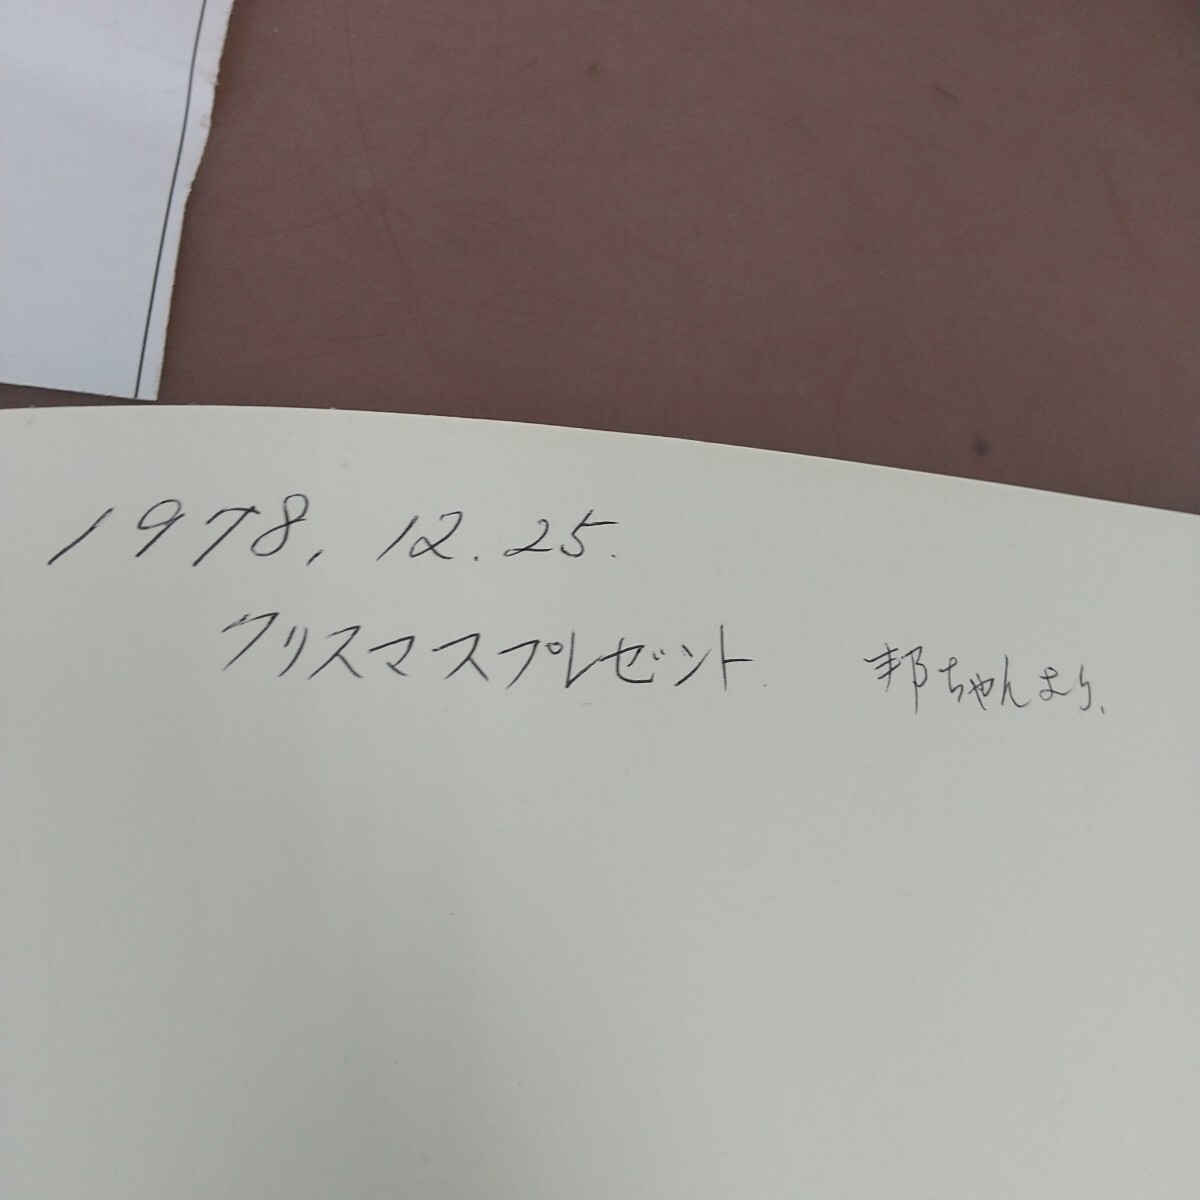 1978, 12.25.
クリスマスプレゼント 邦ちゃんより、